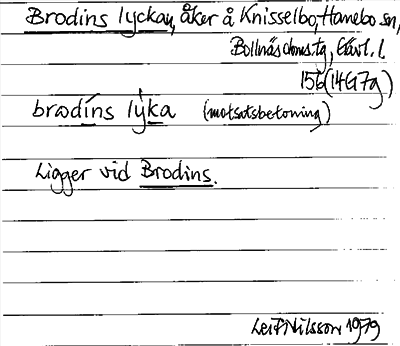 Brodins lyckan, åker å Knisselbo, Hanebo sn,
Bollnäs domstg, Gävl. l.
156 (14G7g)
brodíns lýka (motsatsbetoning)
Ligger vid Brodins.
Leif Nilsson 1979